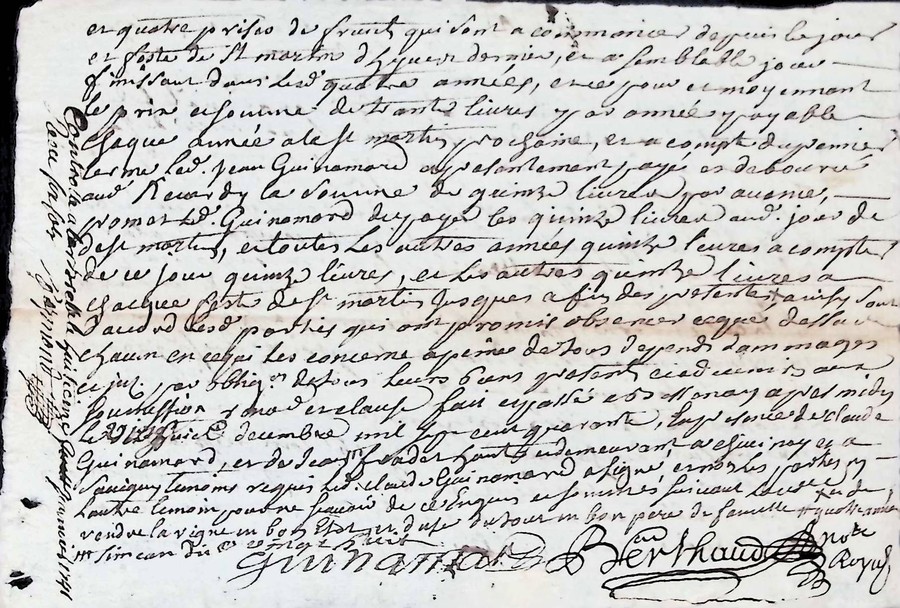 et quatre prises de fruit qui sont a commancer depuis le jour
et feste de St martin d'hyver dernier, et a semblable jour
finissant dans lesd. quatre années, et ce pour et moyennant
le prix et somme de trante livres par année payable
chaque année a la st martin prochaine, et a compte du premier
terme led. Jean Guinamard a presantement payé et debourcé
aud. Revardy la somme de quinze livres par avance,
promet led. Guinamard de payer les quinze livres aud. jour de
de st martin, et toutes les autres années quinze livres a compter
de ce jour quinze livres, et les autres quinze livres a
chacque feste de st martin jusques a fin des presentes, ainsy sont
d'acord lesd. parties qui ont promis observer ce que dessus
chacun en ce qui les concerne a peine de tous depends dommages
et par obligon de tous leurs biens presents et advenir aux
soumission renon et clause fait et passé a Bessenay apres midy
le decembre mil sept cent quarante, en presence de claude
Guinamard, et de Jean demeurant, a chevinay et a
Savigny temoins requis led. Claude Guinamard a signé et non les parties ny
l'autre temoin pour ne sçavoir de ce enquis et sommés suivant
rendre la vigne en bon etat du tout en bon pere de famille quatre années
Guinamard Berthaud note Royal
Controllé a Larbresle le huitieme 1741